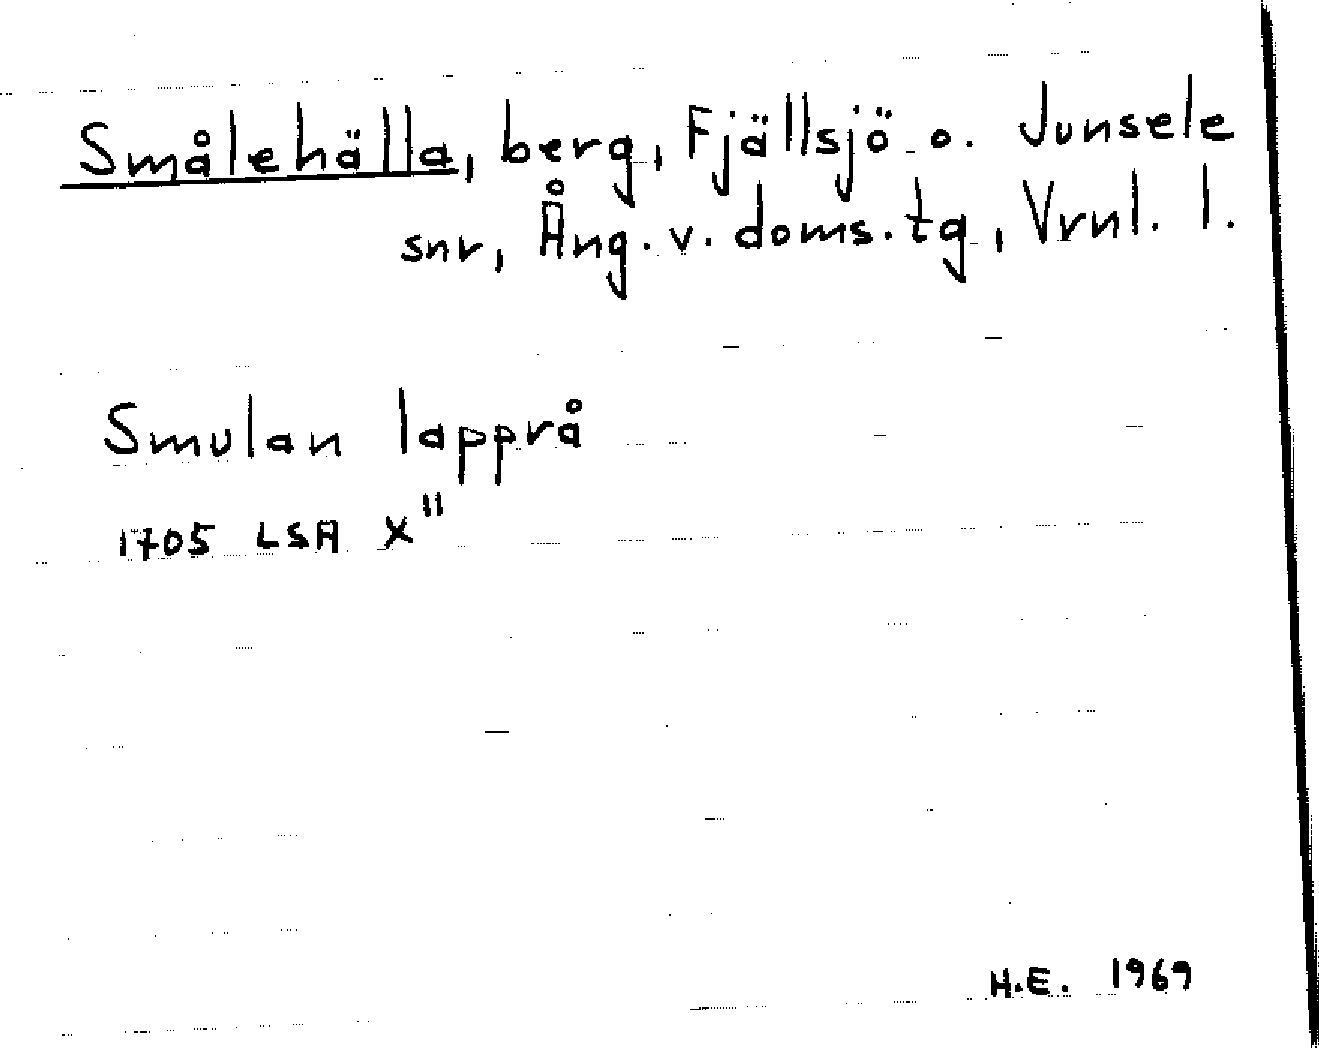 Smålehälla, berg, Fjällsjö o. Junsele
snr, Ång. v. doms. tg, Vrnl. l.
Smulan lapprå
1705 LSA X"
H.E. 1969